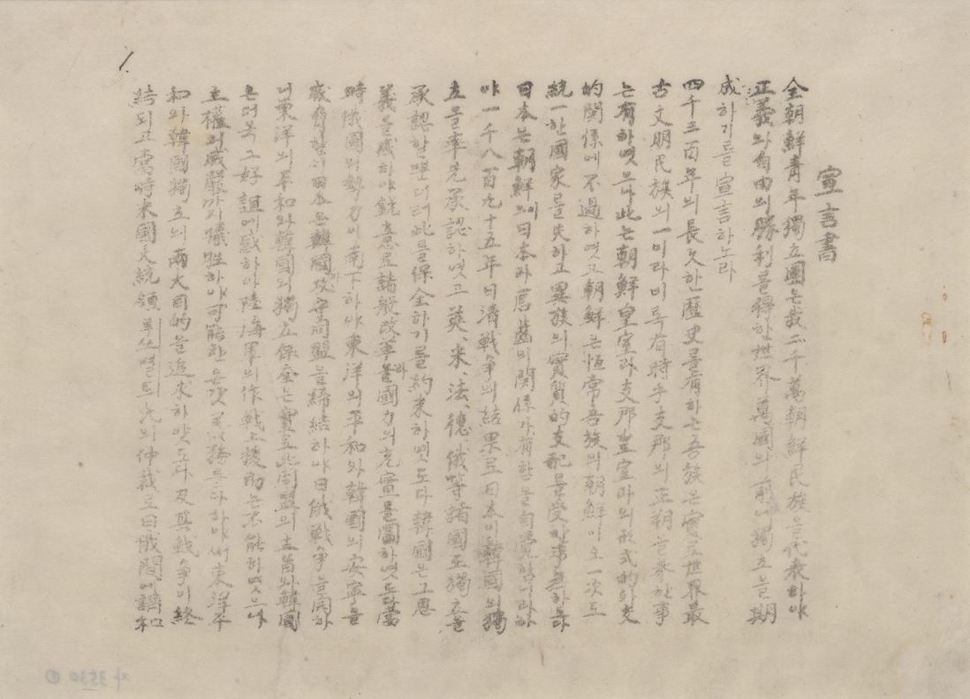 1.
宣言書
全朝鮮青年獨立團은我二千萬朝鮮民族을代表하야
正義와自由의勝利를得한世界萬國의前에獨立을期
成하기를宣言하노라
四千三百年의長久한歷史를有하는吾族은實로世界最
古文明民族의一이라비록有時乎支那의正朔을奉한事
는有하엿으나此는朝鮮皇室과支那皇室과의形式的外交
的關係에不過하엿고朝鮮은恒常吾族의朝鮮이오一次도
統一한國家를失하고異族의實質的支配를受한事無하도다
日本은朝鮮이日本과唇齒의關係가有함을自覺함이라하
야一千八百九十五年日清戰爭의結果로日本이韓國의獨
立을率先承認하엿고英、米、法、德、俄等諸國도獨立을
承認할뿐더러此를保全하기를約束하엿도다韓國은그恩
義를感하야銳意로諸般改革과國力의充實을圖하엿도다當
時俄國의勢力이南下하야東洋의平和와韓國의安寧을
威脅할새日本은韓國과攻守同盟을締結하야日俄戰爭을開하
니東洋의平和와韓國의獨立保全은實로此同盟의主旨와韓國
은더욱그好誼에感하야陸海軍의作戰上援助는不能하엿으나
主權의威嚴까지犧牲하야可能한온갓義務를다하야써東洋平
和와韓國獨立의兩大目的을追求하얏도다及其戰爭이終
結되고當時米國大統領루쓰벨트氏의仲裁로日俄間에講和